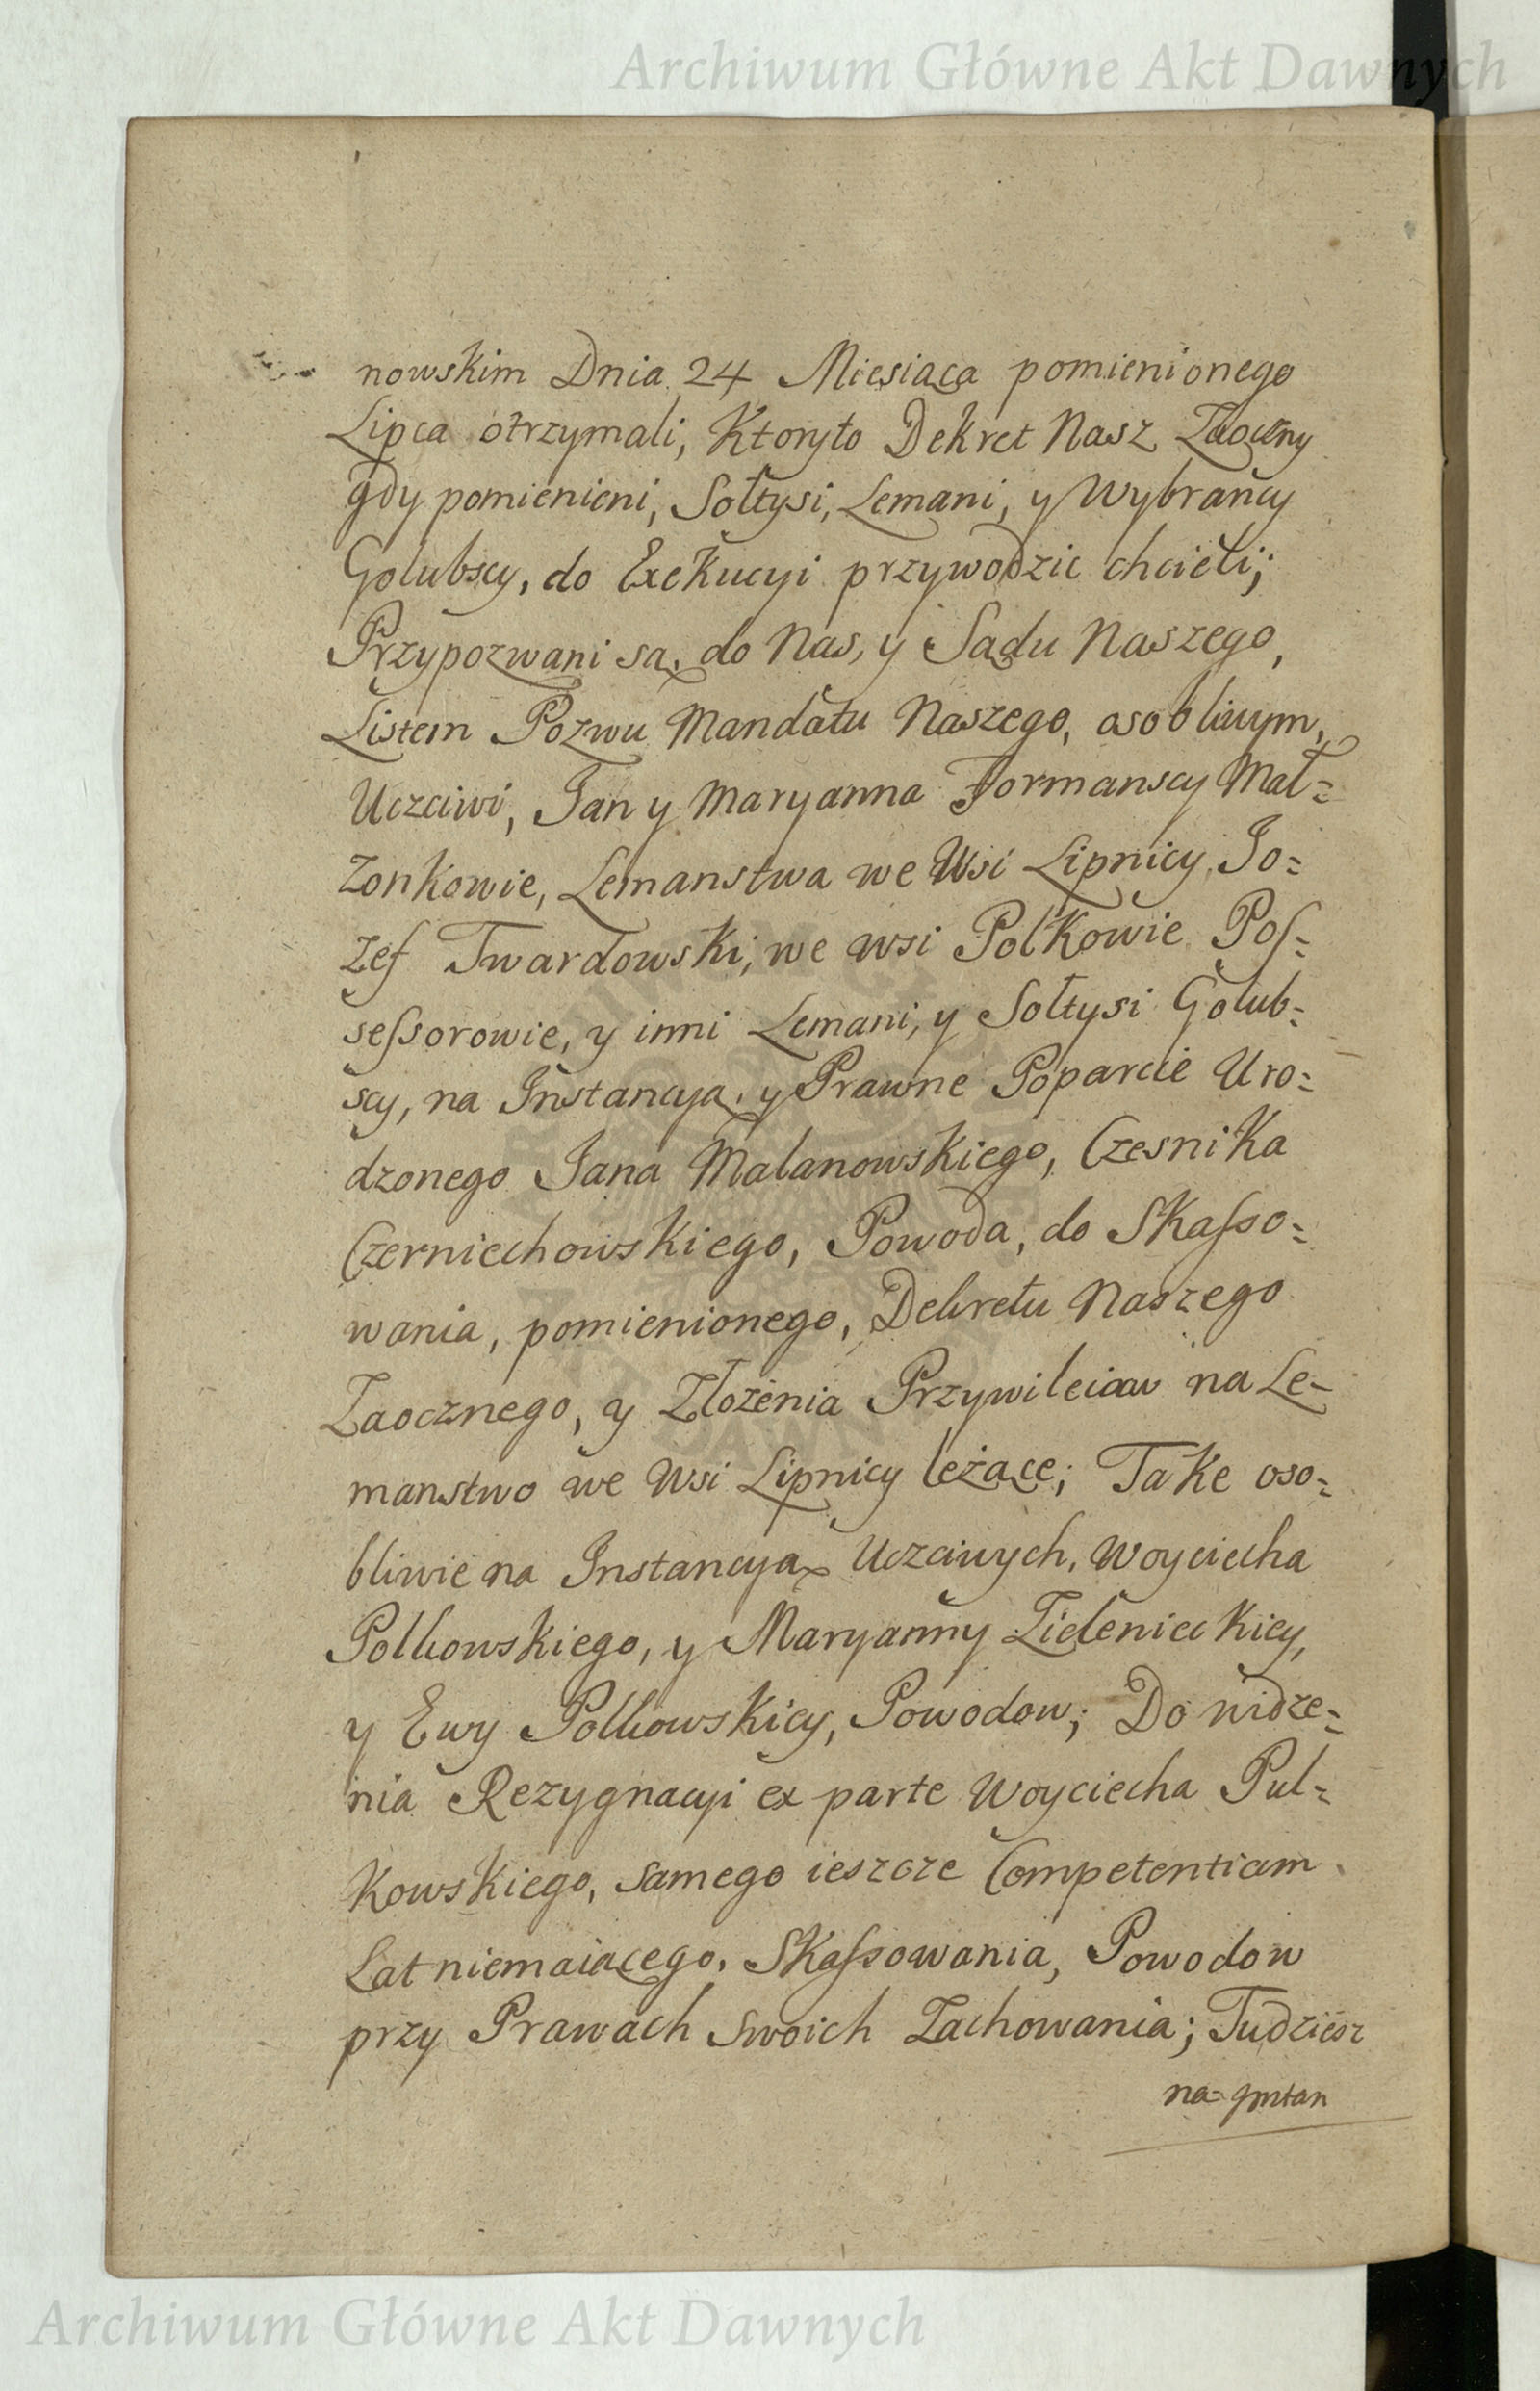 Archiwum Główne Akt Dawnych
nowskim Dnia 24 Miesiąca pomienionego
Lipca otrzymali, Ktoryto Dekret Nasz Zaoczny
gdy pomienieni, Sołtysi, Lemani, y Wybrańcy
Golubscy, do Exekucyi przywodzic chcieli;
Przypozwani są, do Nas, y Sądu Naszego,
Listem Pozwu Mandatu Naszego, osobliwym,
Uczciwi, Jan y Maryanna Formanscy Mał=
zonkowie, Lemanstwa we Wsi Lipnicy, Jo=
zef Twardowski, we wsi Polkowie Pos=
sessorowie, y inni Lemani, y Sołtysi Golub=
scy, na Instancyą, y Prawne Poparcie Uro=
dzonego Jana Malanowskiego, Czesnika
Czerniechowskiego, Powoda, do Skasso=
wania, pomienionego, Dekretu Naszego
Zaocznego, y Złożenia Przywileiow na Le=
manstwo we Wsi Lipnicy leżące; Take oso=
bliwie na Instancyą Uczciwych, Woyciecha
Polkowskiego, y Maryanny Zielenieckiey,
y Ewy Polkowskiey, Powodow; Do widze=
nia Rezygnacyi ex parte Woyciecha Pul=
kowskiego, samego ieszcze Competentiam
Lat niemaiącego, Skassowania, Powodow
przy Prawach swoich Zachowania; Tudziesz
na
Archiwum Główne Akt Dawnych